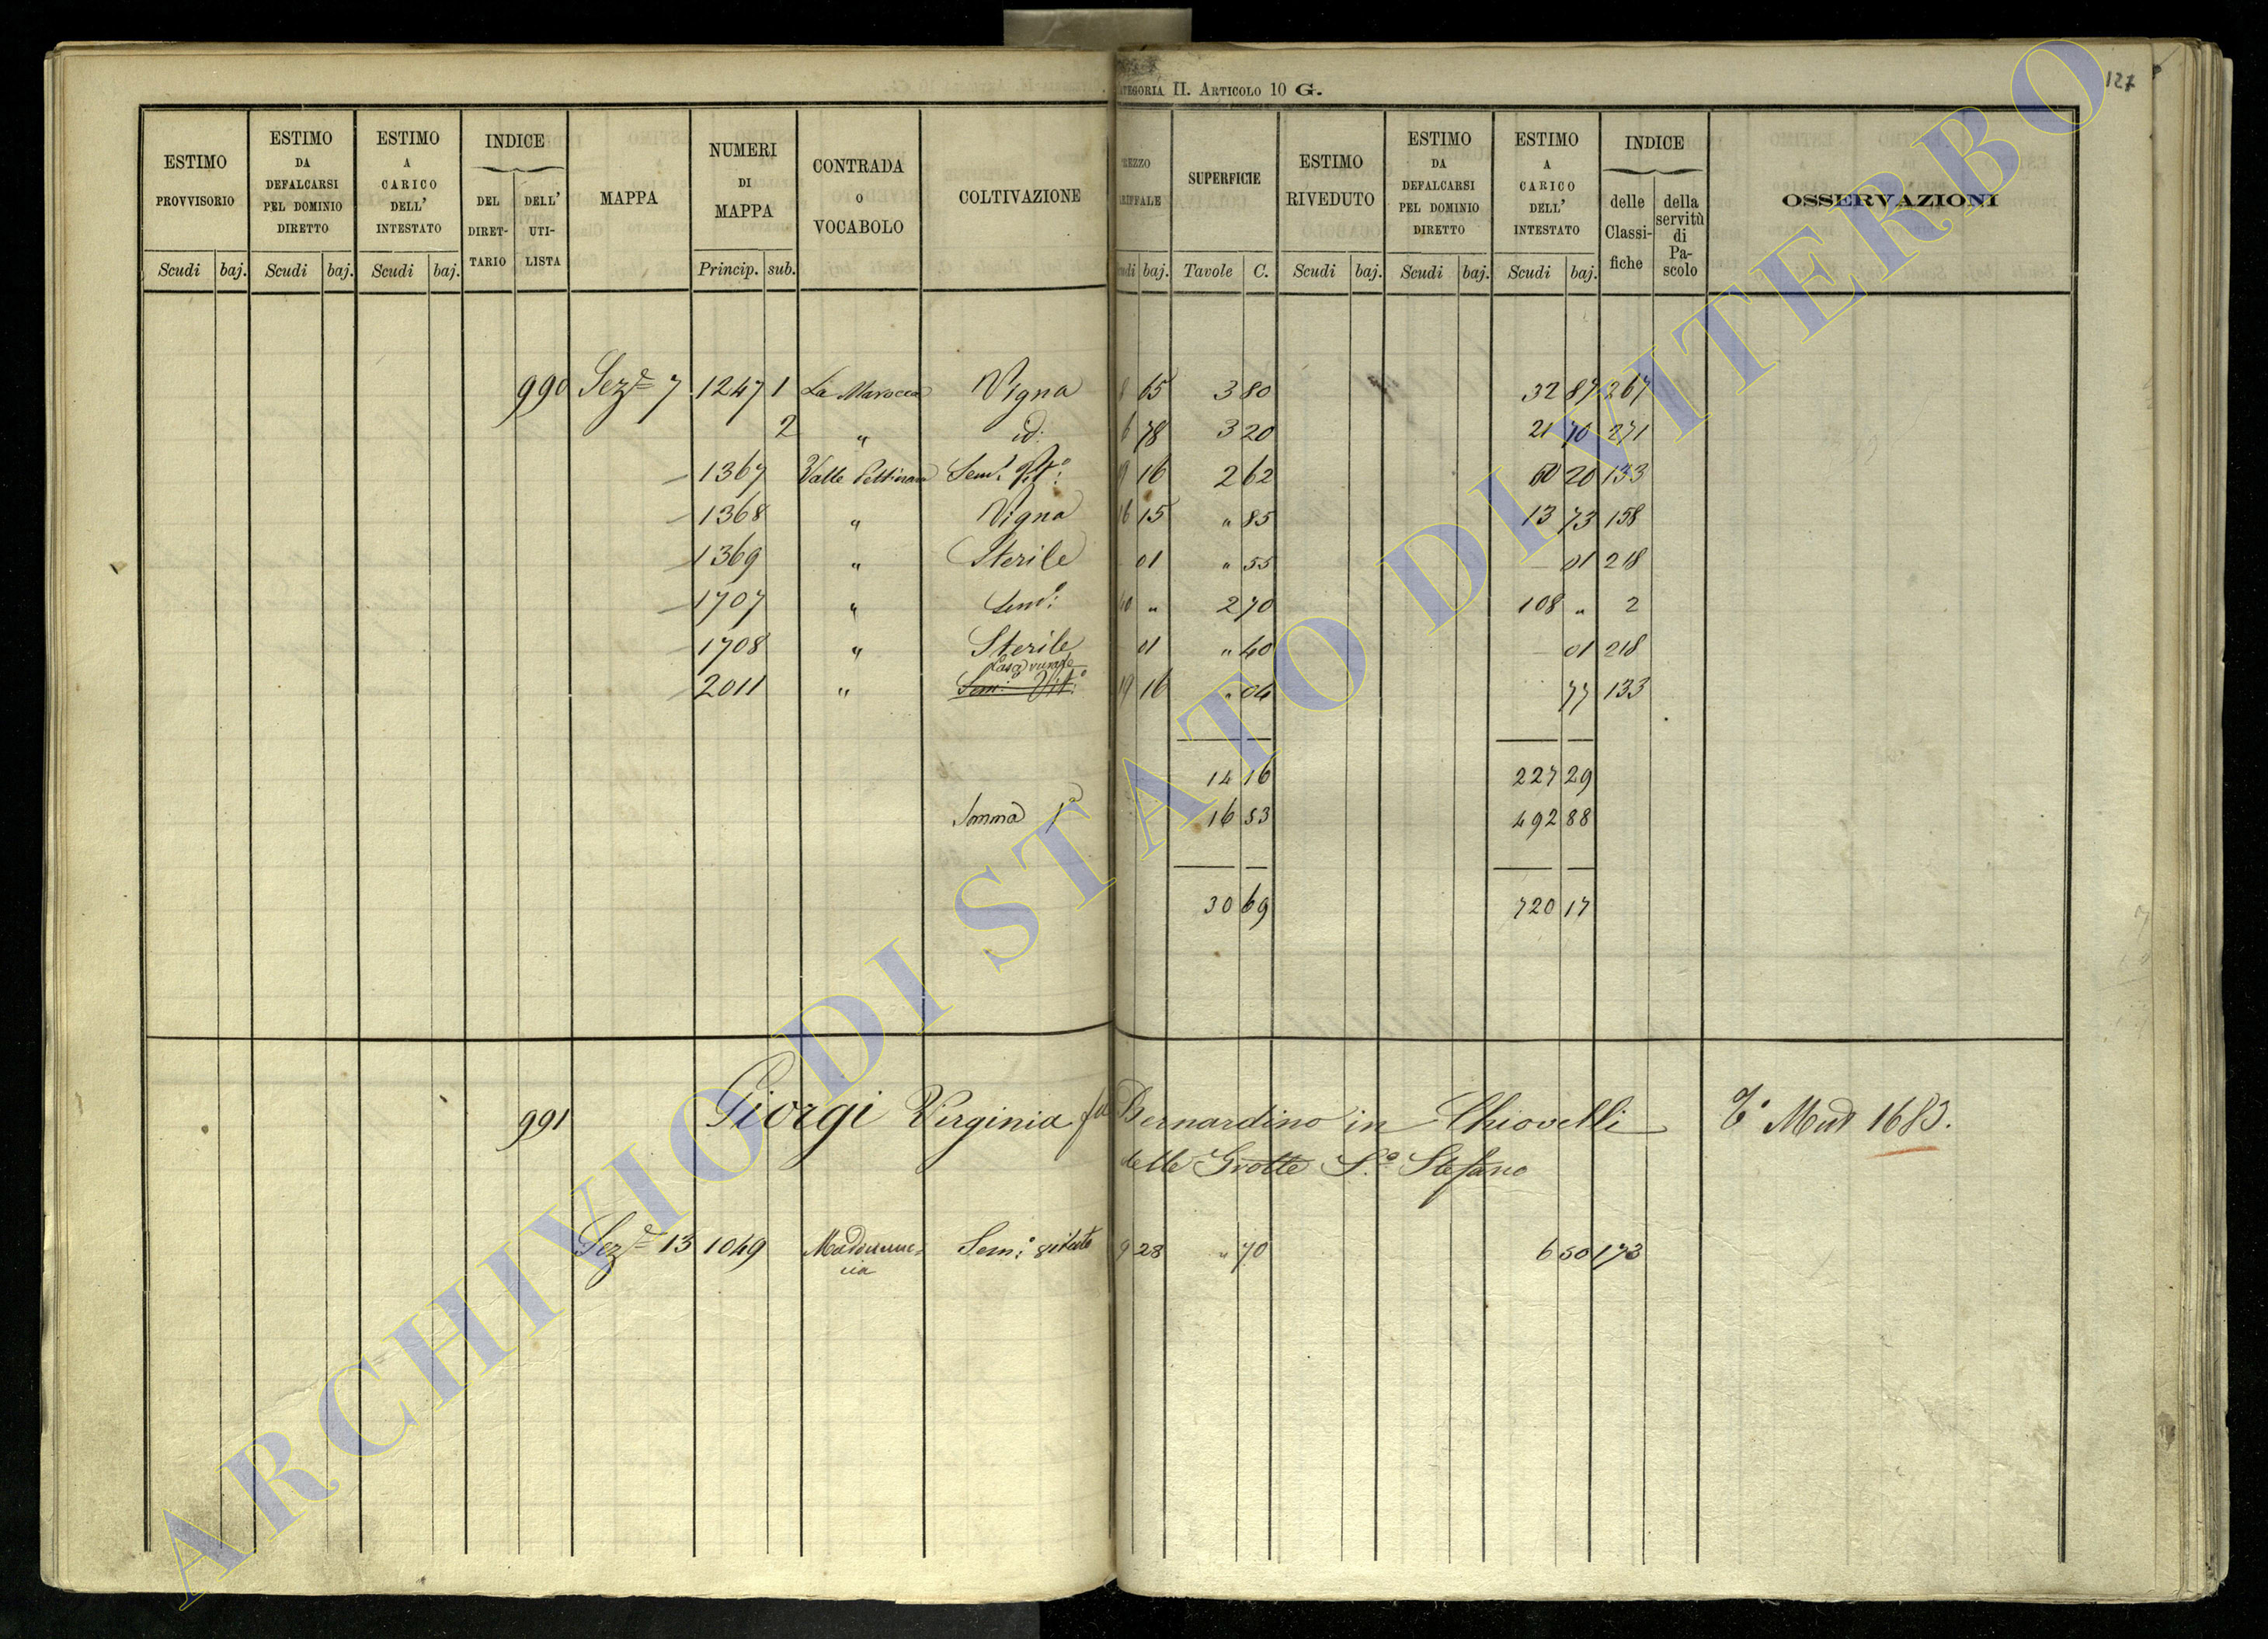 127
CATEGORIA II. ARTICOLO 10 G.
ESTIMO PROVVISORIO
ESTIMO DA DEFALCARSI PEL DOMINIO DIRETTO
ESTIMO A CARICO DELL' INTESTATO
INDICE
DEL DIRET-TARIO
DELL' UTI-LISTA
MAPPA
NUMERI DI MAPPA
CONTRADA O VOCABOLO
COLTIVAZIONE
REZZO RIFFALE
SUPERFICIE
ESTIMO RIVEDUTO
ESTIMO DA DEFALCARSI PEL DOMINIO DIRETTO
ESTIMO A CARICO DELL' INTESTATO
INDICE
delle Classi-fiche
della servitù di Pa-scolo
OSSERVAZIONI
Scudi baj. Scudi baj. Scudi baj. Princip. sub. udi baj. Tavole C. Scudi baj. Scudi baj. Scudi baj.
990 Sez.e 7 1247 1 La Marocca Vigna 8 65 3 80 32 87 267
2 " id. 6 78 3 20 21 70 271
1367 Valle Sem.o Vit.o 19 16 2 62 50 20 133
1368 " Vigna 16 15 " 85 13 73 158
1369 " Sterile 01 " 55 01 218
1707 " Sem.o 40 " 2 70 108 " 2
1708 " Sterile 01 " 40 01 218
Casa rurale
2011 " Sem.o Vit.o 19 16 " 04 77 133
14 16 227 29
Somma 16 53 492 88
30 69 720 17
991 Giorgi Virginia fu Bernardino in Chiovelli T.o Mod 1683.
delle Grotte S.o Stefano
Sez.e 13 1049 Sem.o vitato 9 28 " 70 6 50 173
ARCHIVIO DI STATO DI VITERBO